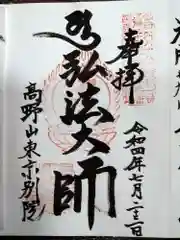 奉拝
令和四年七月二三日
弘法大師
高野山東京別院